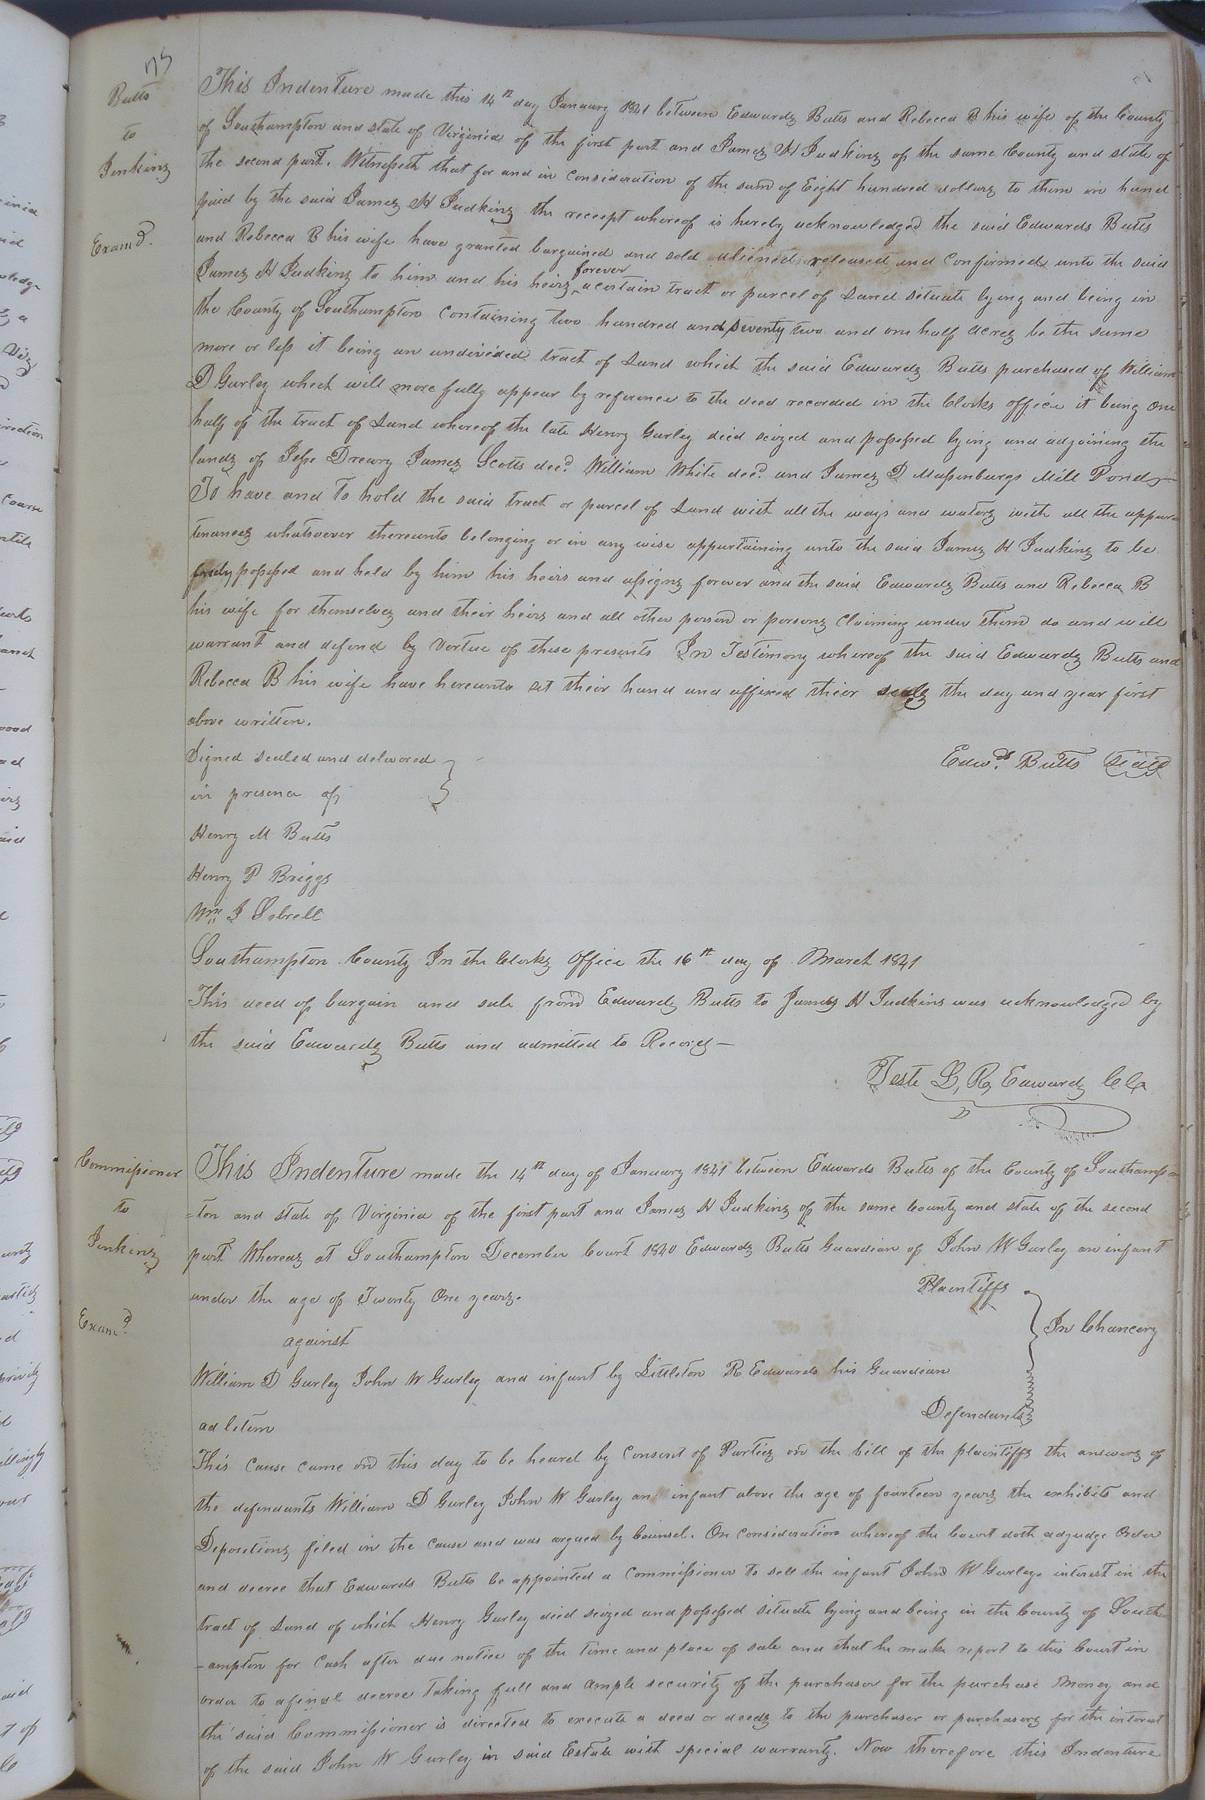 Butts
to
Jenkins
Exam.d
This Indenture made this 14th day January 1841 between Edwards Butts and Rebecca B his wife of the County
of Southampton and state of Virginia of the first part and James H Judkins of the same County and state of
the second part. Witnesseth that for and in consideration of the sum of Eight hundred dollars to them in hand
paid by the said James H Judkins the receipt whereof is hereby acknowledged the said Edwards Butts
and Rebecca B his wife have granted bargained and sold aliened released and confirmed unto the said
James H Judkins to him and his heirs forever a certain tract or parcel of Land situate lying and being in
the County of Southampton Containing two hundred and Seventy two and one half acres be the same
more or less it being an undivided tract of Land which the said Edwards Butts purchased of William
D Gurley which will more fully appear by reference to the deed recorded in the Clerks office it being one
half of the tract of Land whereof the late Henry Gurley died seized and possessed lying and adjoining the
lands of Jesse Drewry James Scotts decd. William White decd. and James D Massenburgs Mill Pond
To have and To hold the said tract or parcel of Land with all the ways and waters with all the appur-
tenances whatsoever thereunto belonging or in any wise appurtaining unto the said James H Judkins to be
freely possessed and held by him his heirs and assigns forever and the said Edwards Butts and Rebecca B
his wife for themselves and their heirs and all other person or persons Claiming under them do and will
warrant and defend by Vertue of these presents In Testimony whereof the said Edwards Butts and
Rebecca B his wife have hereunto set their hand and affixed their seals the day and year first
above written.
Signed sealed and delivered
in presence of
Edwds. Butts Seal
Henry M Butts
Henry P Briggs
Wm J Sebrell
Southampton County In the Clerks Office the 16th day of March 1841
This deed of bargain and sale from Edwards Butts to James H Judkins was acknowledged by
the said Edwards Butts and admitted to Record—
Teste L, R, Edwards CC
Commissioner
to
Jenkins
Exam.d
This Indenture made the 14th day of January 1841 between Edwards Butts of the County of Southamp-
=ton and state of Virginia of the first part and James H Judkins of the same County and state of the second
part Whereas at Southampton December Court 1840 Edwards Butts Guardian of John W Gurley an infant
under the age of Twenty One years.
Plaintiffs
against
In Chancery
William D Gurley John W Gurley and infant by Littleton R Edwards his Guardian
ad litem
Defendants
This cause came on this day to be heard by Consent of Parties on the bill of the plaintiffs the answers of
the defendants William D Gurley John W Gurley an infant above the age of fourteen years the exhibits and
Depositions filed in the cause and was argued by Counsel. On consideration whereof the Court doth adjudge Order
and decree that Edwards Butts be appointed a Commissioner to sell the infant John W Gurleys interest in the
tract of Land of which Henry Gurley died seized and possessed situate lying and being in the County of South-
-ampton for Cash after due notice of the time and place of sale and that he make report to this Court in
order to a final decree Taking full and ample security of the purchaser for the purchase Money and
the said Commissioner is directed to execute a deed or deeds to the purchaser or purchasers for the interest
of the said John W Gurley in said Estate with special warranty. Now therefore this Indenture